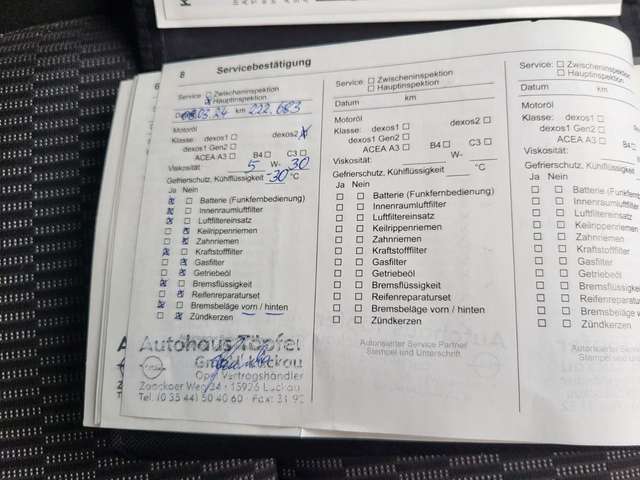 8 Servicebestätigung
Service: Zwischeninspektion
Hauptinspektion
03.24 km 222.683
Motoröl
Klasse: dexos1 dexos2
dexos1 Gen2
ACEA A3 B4 C3
Viskosität: 5 W- 30
Gefrierschutz, Kühlflüssigkeit -30 °C
Ja Nein
Batterie (Funkfernbedienung)
Innenraumluftfilter
Luftfiltereinsatz
Keilrippenriemen
Zahnriemen
Kraftstofffilter
Gasfilter
Getriebeöl
Bremsflüssigkeit
Reifenreparaturset
Bremsbeläge vorn / hinten
Zündkerzen
Autohaus Töpfel
Luckau
Opel Vertragshändler
Zaackoer Weg 34 · 15926 Luckau
Tel. (0 35 44) 50 40 60 Fax: 31 92
Service: Zwischeninspektion
Hauptinspektion
Datum km
Motoröl
Klasse: dexos1 dexos2
dexos1 Gen2
ACEA A3 B4 C3
Viskosität: W-
Gefrierschutz, Kühlflüssigkeit °C
Ja Nein
Batterie (Funkfernbedienung)
Innenraumluftfilter
Luftfiltereinsatz
Keilrippenriemen
Zahnriemen
Kraftstofffilter
Gasfilter
Getriebeöl
Bremsflüssigkeit
Reifenreparaturset
Bremsbeläge vorn / hinten
Zündkerzen
Autorisierter Service Partner
Stempel und Unterschrift
Service: Zwischeninspektion
Hauptinspektion
Datum km
Motoröl
Klasse: dexos1
dexos1 Gen2
ACEA A3
Viskosität:
Gefrierschutz, Kühlflüssigkeit
Ja Nein
Batterie (Funkfernb
Innenraumluftfilter
Luftfiltereinsatz
Keilrippenriemen
Zahnriemen
Kraftstofffilter
Gasfilter
Getriebeöl
Bremsflüssigkeit
Reifenreparaturset
Bremsbeläge vorn
Zündkerzen
Autorisierter Service
Stempel und Unter